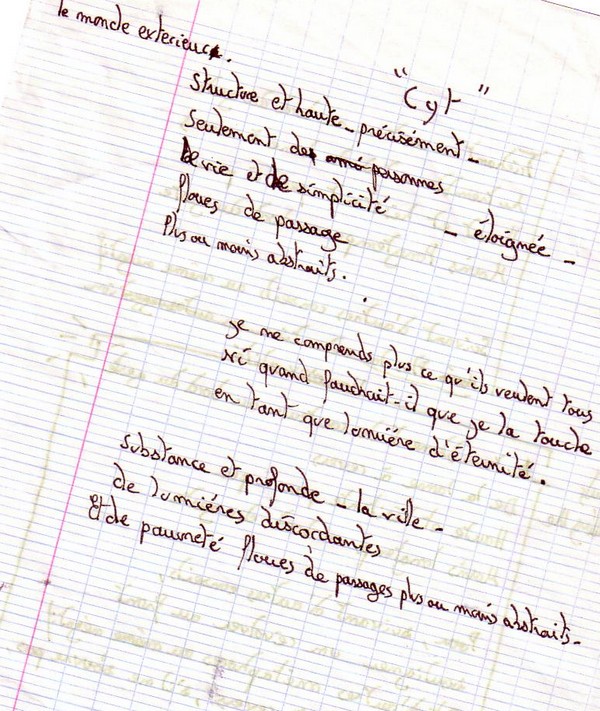 le monde exterieur.
"Cyt"
structure et haute - précisément -
seulement des personnes
De vie et de simplicité
floues de passage - éloignée -
Plus ou moins abstraits.
je ne comprends plus ce qu'ils veulent tous
ni quand fauchait-il que je la touche
en tant que lumière d'éternité.
substance et profonde - la ville -
de lumières discordantes
Et de pauvreté floues de passages plus ou moins abstraits-